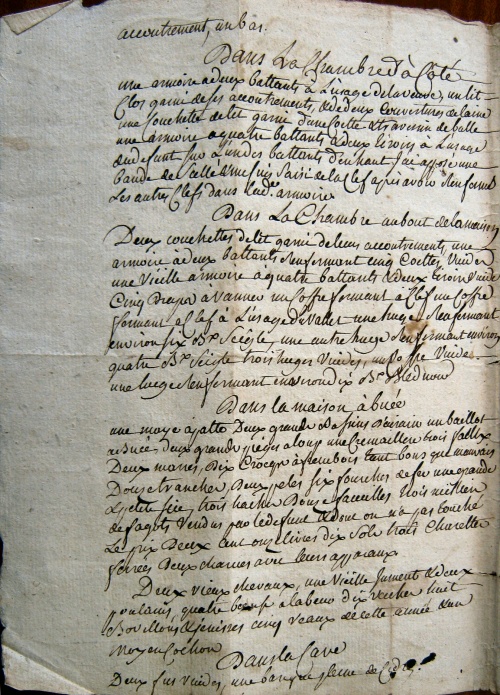 accoutrement, un bas.
Dans La Chambre d'à Côté
une armoire a deux battants à L'usage de la veuve, un lit
Clos garni de ses accoutrements, & de deux couvertures de laine
une couchette de lit garni d'une Coette & traversin de balle
une armoire a quatre battants & deux tiroirs à L'usage
du defunt sur L'un des battants d'en haut J'ai apposé une
bande de & me suis saisi de la Clef apres avoir Renfermé
Les autres Clefs dans lad. armoire.
Dans La Chambre au bout de la maison
Deux couchettes de lit garni de leurs accoutrements, une
armoire à deux battants Renfermant cinq Coettes, vuides
une Vieille armoire a quatre battants & deux tiroirs vuide
Cinq à vanner un Coffre fermant à Clef un Coffre
fermant a Clef à L'usage du Vallet une huge Renfermant
environ six Bx Seigle, une autre huge Renfermant environ
quatre Bx Seigle trois huges Vuides, un Vuide
une huge Renfermant environ dix Bx Bled noir
Dans la maison à buée
une moye a patte Deux grands Bassins D'airain un baillot
a Buée, Deux grands a loup une Cremaillere trois faulx
Deux marres, Dix Crocqs à tant bons que mauvais
Douze tranches, Deux pelles six fourches de fer une grande
& petite scie, trois haches Douze faucilles trois milliers
de fagots Vendus par le defunt & dont on n'a pas touché
Le prix Deux cent onze livres dix Sols trois Charettes
ferrées Deux charues avec leurs apparaux
Deux vieux chevaux, une Vieille Jument & deux
poulains, quatre bœufs a labeur dix vaches huit
Bouvillons & jenisses cinq veaux de cette année & un
moyen Cochon
Dans la Cave
Deux fus vuides, une barique pleine de Cidre